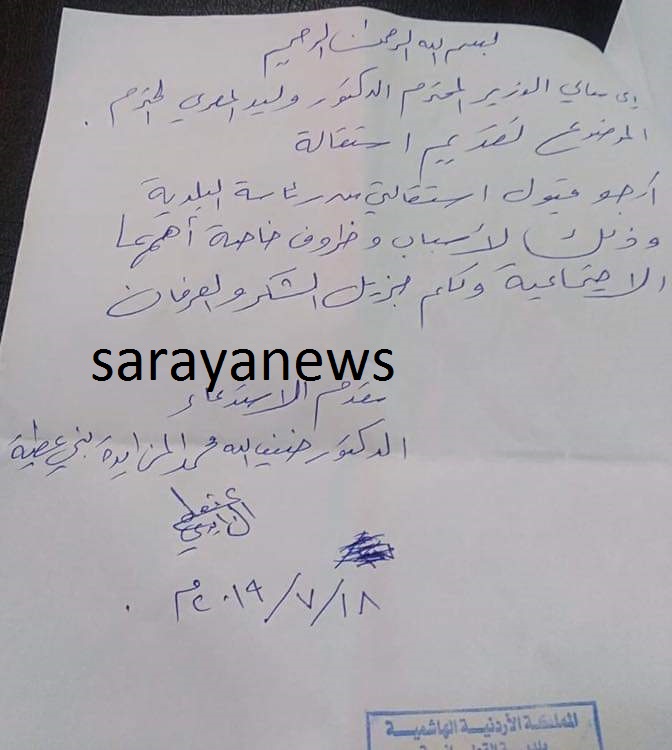 بسم الله الرحمن الرحيم
إلى معالي الوزير المحترم الدكتور وليد المصري المحترم.
الموضوع تقديم استقالة
أرجو قبول استقالتي من رئاسة البلدية
وذلك لأسباب وظروف خاصة أهمها
الاجتماعية ولكم جزيل الشكر والعرفان
sarayanews
مقدم الاستدعاء
الدكتور ضيف الله محمد المزايدة بني عطية
١٨/٧/٢٠١٩م.
المملكة الأردنية الهاشمية